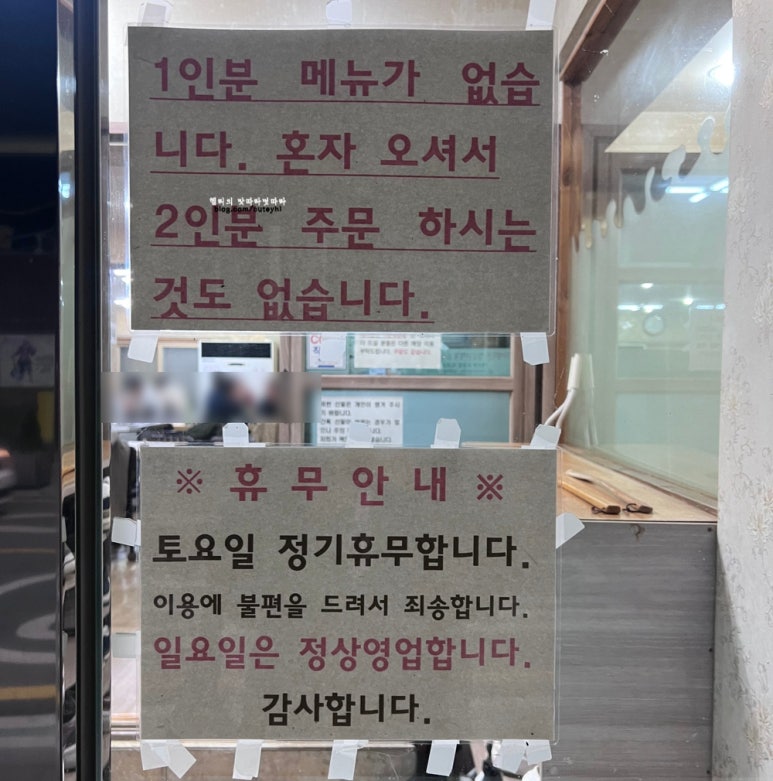 1인분 메뉴가 없습
니다. 혼자 오셔서
2인분 주문 하시는
것도 없습니다.
※ 휴 무 안 내 ※
토요일 정기휴무합니다.
이용에 불편을 드려서 죄송합니다.
일요일은 정상영업합니다.
감사합니다.